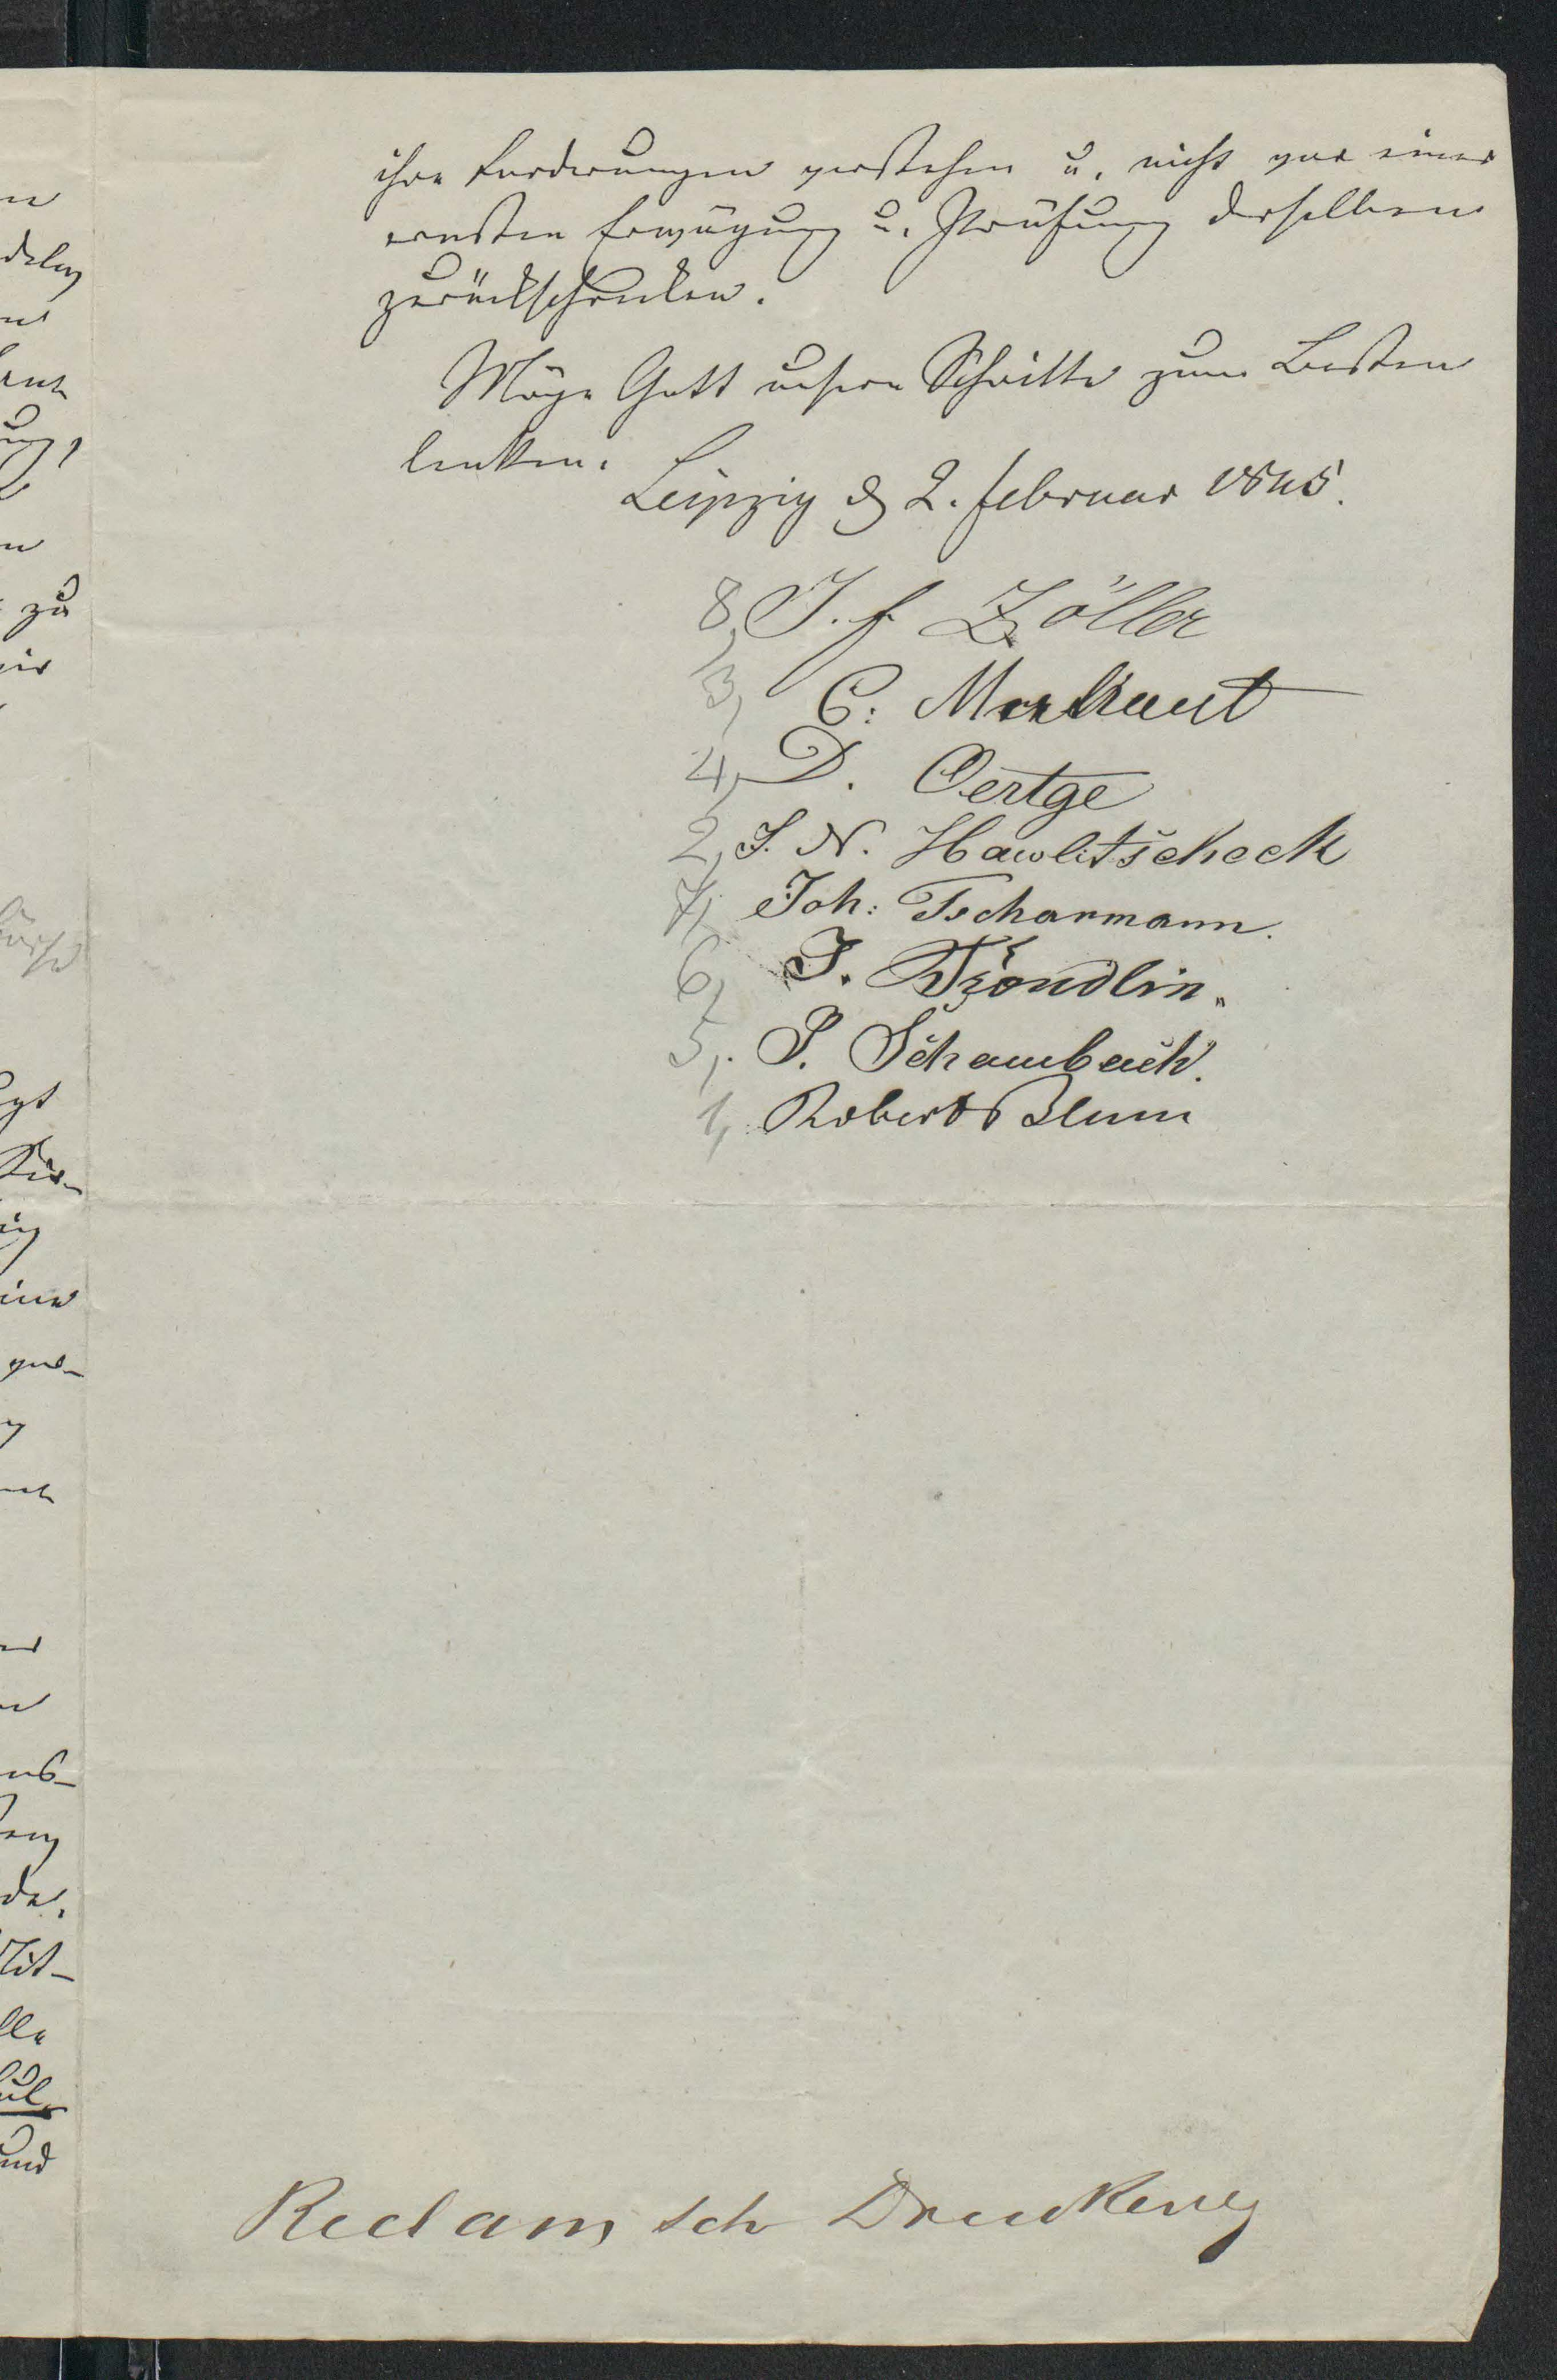 ihre Forderungen verstehen u. nicht vor einer
ernsten Erwägung u. Prüfung derselben
zurückschrecken.
Möge Gott unsere Schritte zum Besten
lenken.
Leipzig d 2. Februar 1845.
8, J. F Zöller
3, C:
4, D. Oertge
2, J. N. Hawlitscheck
7, Joh: Tscharmann.
6, J. Tröndlin.
5, P. Schambach.
1, Robert Blum
Reclam sch Druckerey